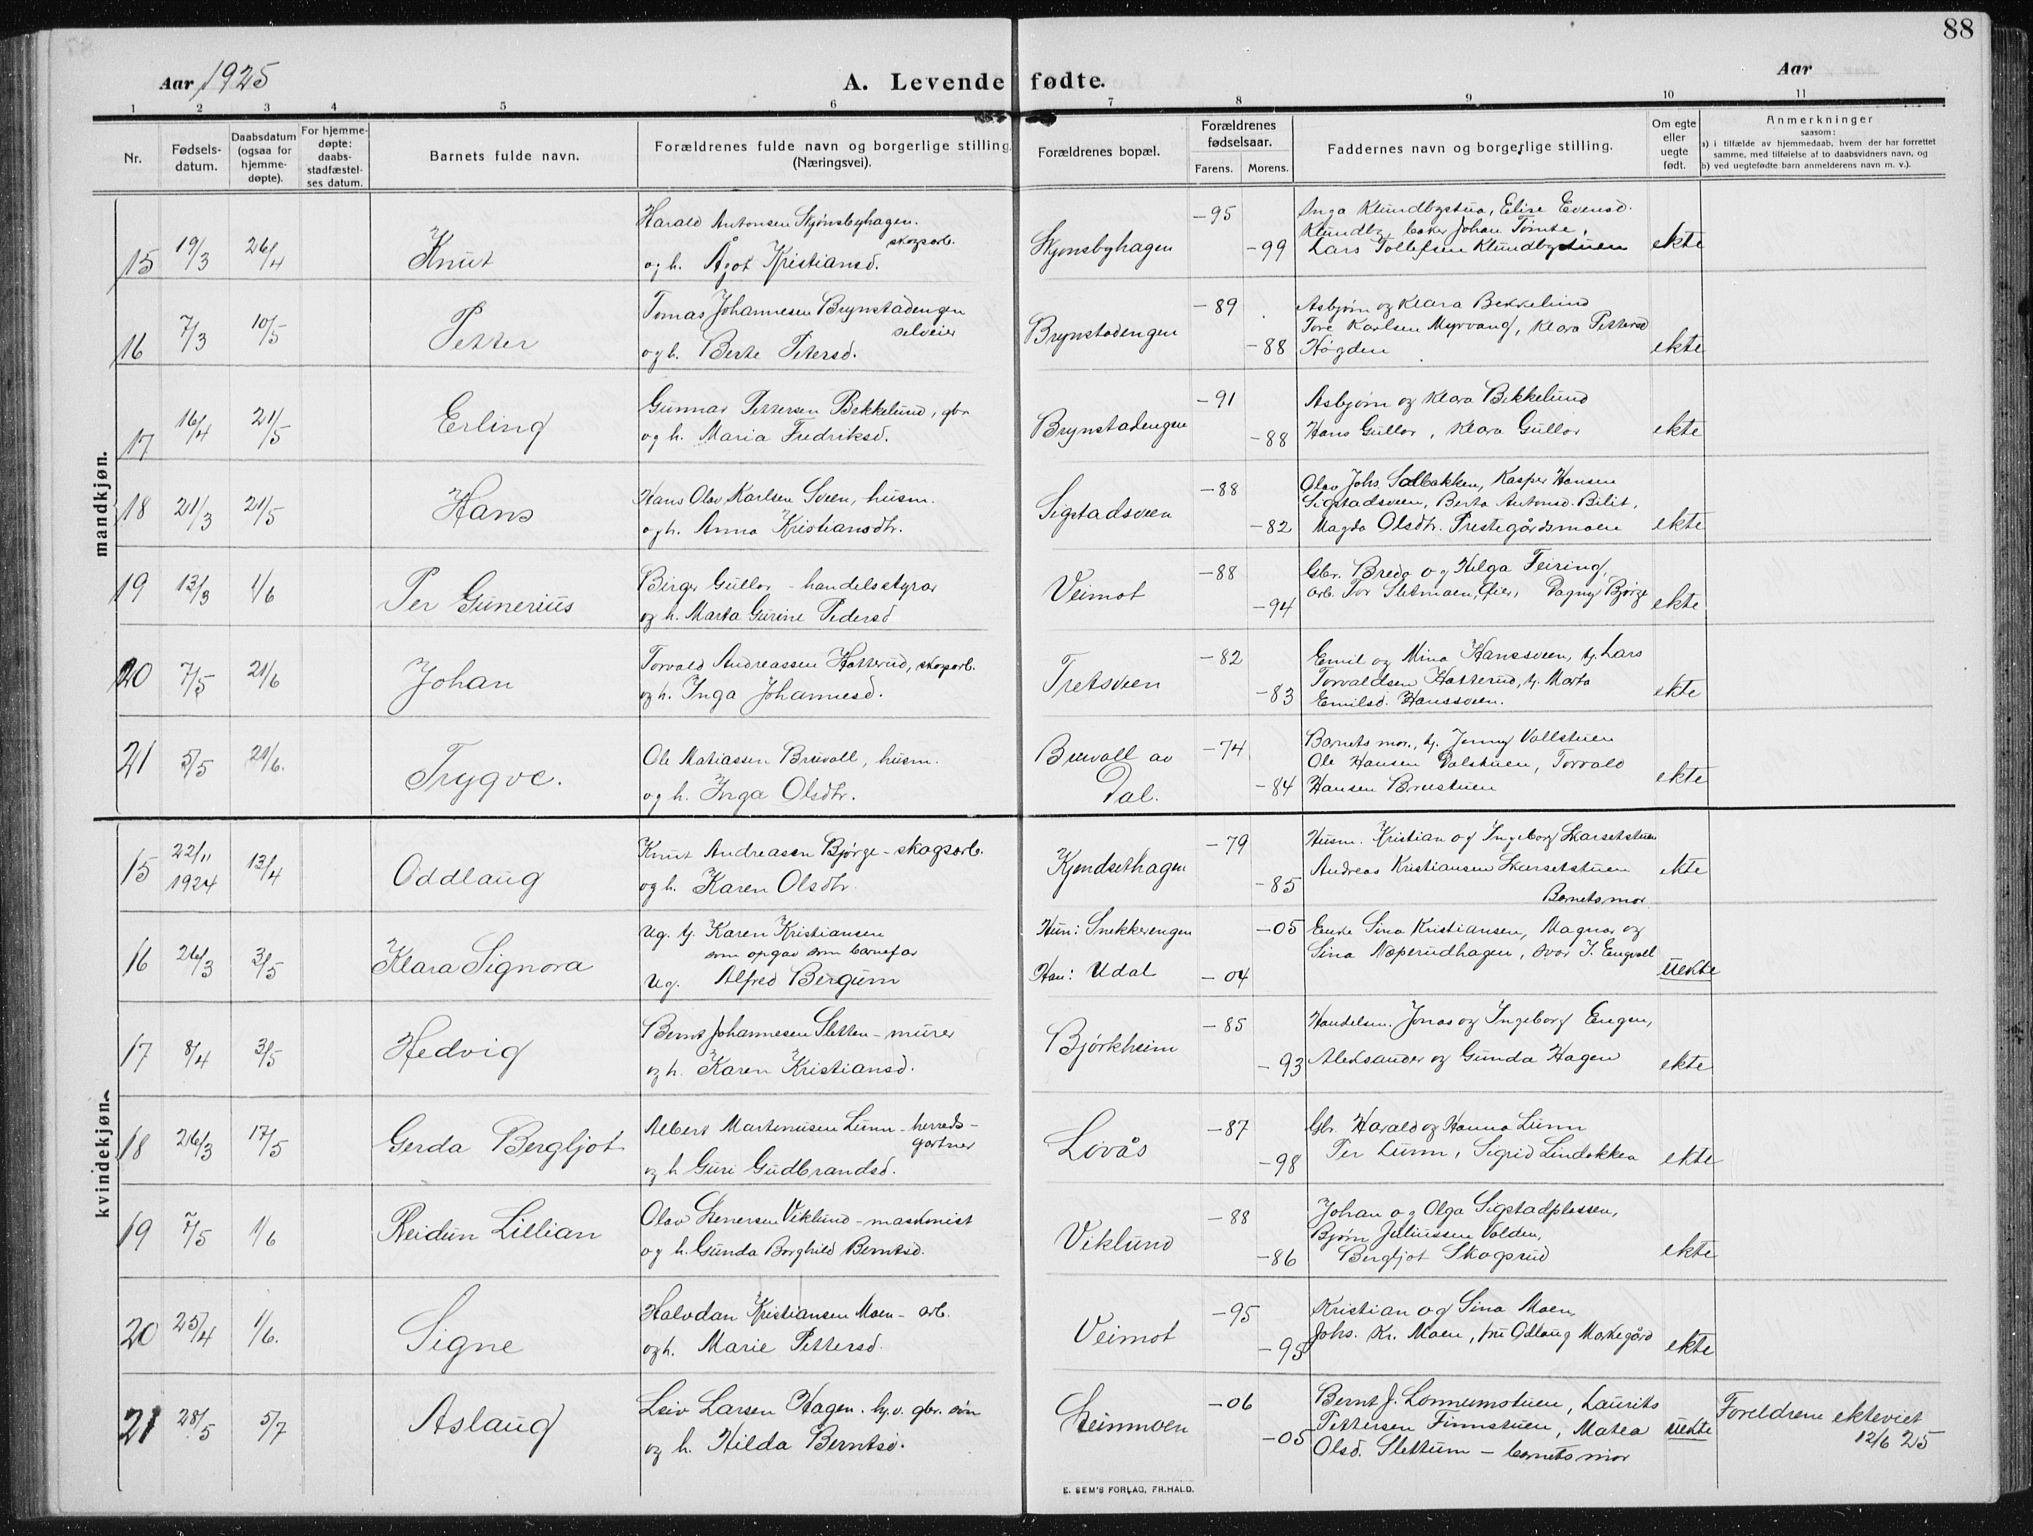 88
Aar 1925
A. Levende fødte.
Aar
1 2 3 4 5 6 7 8 9 10 11
Nr.
Fødsels-
datum.
Daabsdatum
(ogsaa for
hjemme-
døpte).
For hjemme-
døpte:
daabs-
stadfæstel-
ses datum.
Barnets fulde navn.
Forældrenes fulde navn og borgerlige stilling
(Næringsvei).
Forældrenes bopæl.
Forældrenes
fødselsaar.
Farens. Morens.
Faddernes navn og borgerlige stilling.
Om egte
eller
uegte
født.
Anmerkninger
saasom:
a) i tilfælde av hjemmedaab, hvem der har forrettet
samme, med tilføielse af to daabsvidners navn, og
b) ved uegtefødte barn anmelderens navn m. v.).
mandkjøn.
15 19/3 26/4 Knut
Harald Antonsen Skjønsbyhagen.
skogsarb.
og h. Ågot Kristiansd.
Skjønsbyhagen
-95
-99
Inga Klundbystua, Elise Evensd.
Klundby, Johan Tømte,
Lars Tollefsen Klundbystuen
ekte
16 7/3 10/5 Petter
Tomas Johannesen Brynstadengen
selveier
og h. Berte Petersd.
Brynstadengen
-89
-88
Asbjørn og Klara Bekkelund
Tore Karlsen Myrvang, Klara Pettersd
Høgden
ekte
17 16/4 21/5 Erling
Gunnar Pettersen Bekkelund, gbr
og h. Maria Fredriksd.
Brynstadengen
-91
-88
Asbjørn og Klara Bekkelund
Hans Gullor, Klara Gullor
ekte
18 21/3 21/5 Hans
Hans Olav Karlsen Sveen, husm.
og h. Anna Kristiansdtr.
Sigstadsveen
-88
-82
Olav Johs. Solbakken, Kasper Hansen
Sigstadsveen, Berta Antonsd. Bilit,
Magda Olsdtr. Prestegårdsmoen
ekte
19 13/3 1/6 Per Gunerius
Birger Gullor - handelsstyrer
og h. Marta Gurine Pedersd
Veimot
-88
-94
Gbr. Brede og Helga Feiring,
arb. Tor Sletmoen, Eier, Dagny Bjørge
ekte
20 7/5 21/6 Johan
Torvald Andreassen Hatterud, skogsarb.
og h. Inga Johannesd.
Tretsveen
-82
-83
Emil og Mina Hanssveen, tj. Lars
Torvaldsen Hatterud, tj. Marta
Emilsd. Hanssveen.
ekte
21 5/5 21/6. Trygve.
Ole Matiassen Bruvoll, husm.
og h. Inga Olsdtr.
Bruvoll av
Dal.
-74
-84
Barnets mor, tj. Jenny Vollstuen
Ole Hansen Dalstuen, Torvald
Hansen Brustuen
ekte
kvindekjøn.
15 22/11
1924
13/4 Oddlaug
Knut Andreasen Bjørge - skogsarb.
og h. Karen Olsdtr.
Kjendsethagen
-79
-85
Husm. Kristian og Ingeborg Skarsetstuen
Andreas Kristiansen Skarsetstuen
Barnets mor
ekte
16 26/3 3/5 Klara Signora
Ug. tj. Karen Kristiansen
som opgav som barnefar
Ug. Alfred Bergum
Hun: Snekkerengen
Han: Udal
-05
-04
Enke Sina Kristiansen, Magnar og
Sina Næperudhagen, Ivar I. Engvoll
uekte
17 8/4 3/5 Hedvig
Bernt Johannesen Sletten - murer
og h. Karen Kristiansd.
Bjørkheim
-85
-93
Handelsm. Jonas og Ingeborg Engen,
Aleksander og Gunda Hagen
ekte
18 26/3 17/5 Gerda Bergljot
Albert Martinusen Lunn - herreds-
gartner
og h. Guri Gudbrandsd.
Lovås
-87
-98
Gbr. Harald og Hanna Lunn
Per Lunn, Sigrid Lindokken
ekte
19 7/5 1/6 Reidun Lillian
Olav Stenersen Viklund - maskinist
og h. Gunda Borghild Berntsd.
Viklund
-88
-86
Johan og Olga Sigstadplassen,
Bjørn Juliussen Volden,
Bergljot Skogsrud
ekte
20 25/4 1/6. Signe
Halvdan Kristiansen Moen - arb.
og h. Marie Pettersd.
Veimot
-95
-95
Kristian og Sina Moen,
Johs. Kr. Moen, fru Odlaug Markegård
ekte
21 28/5 5/7 Aslaug
Leiv Larsen Hagen. hj.v. gbr. søn
og h. Hilda Berntsd.
Steinmoen
-06
-05
Bernt J. Lønnumstuen, Laurits
Pettersen Finnstuen, Matea
Olsd. Slettum - barnets mor
uekte
Foreldrene ekteviet
12/6 25
E. SEM'S FORLAG, FR.HALD.